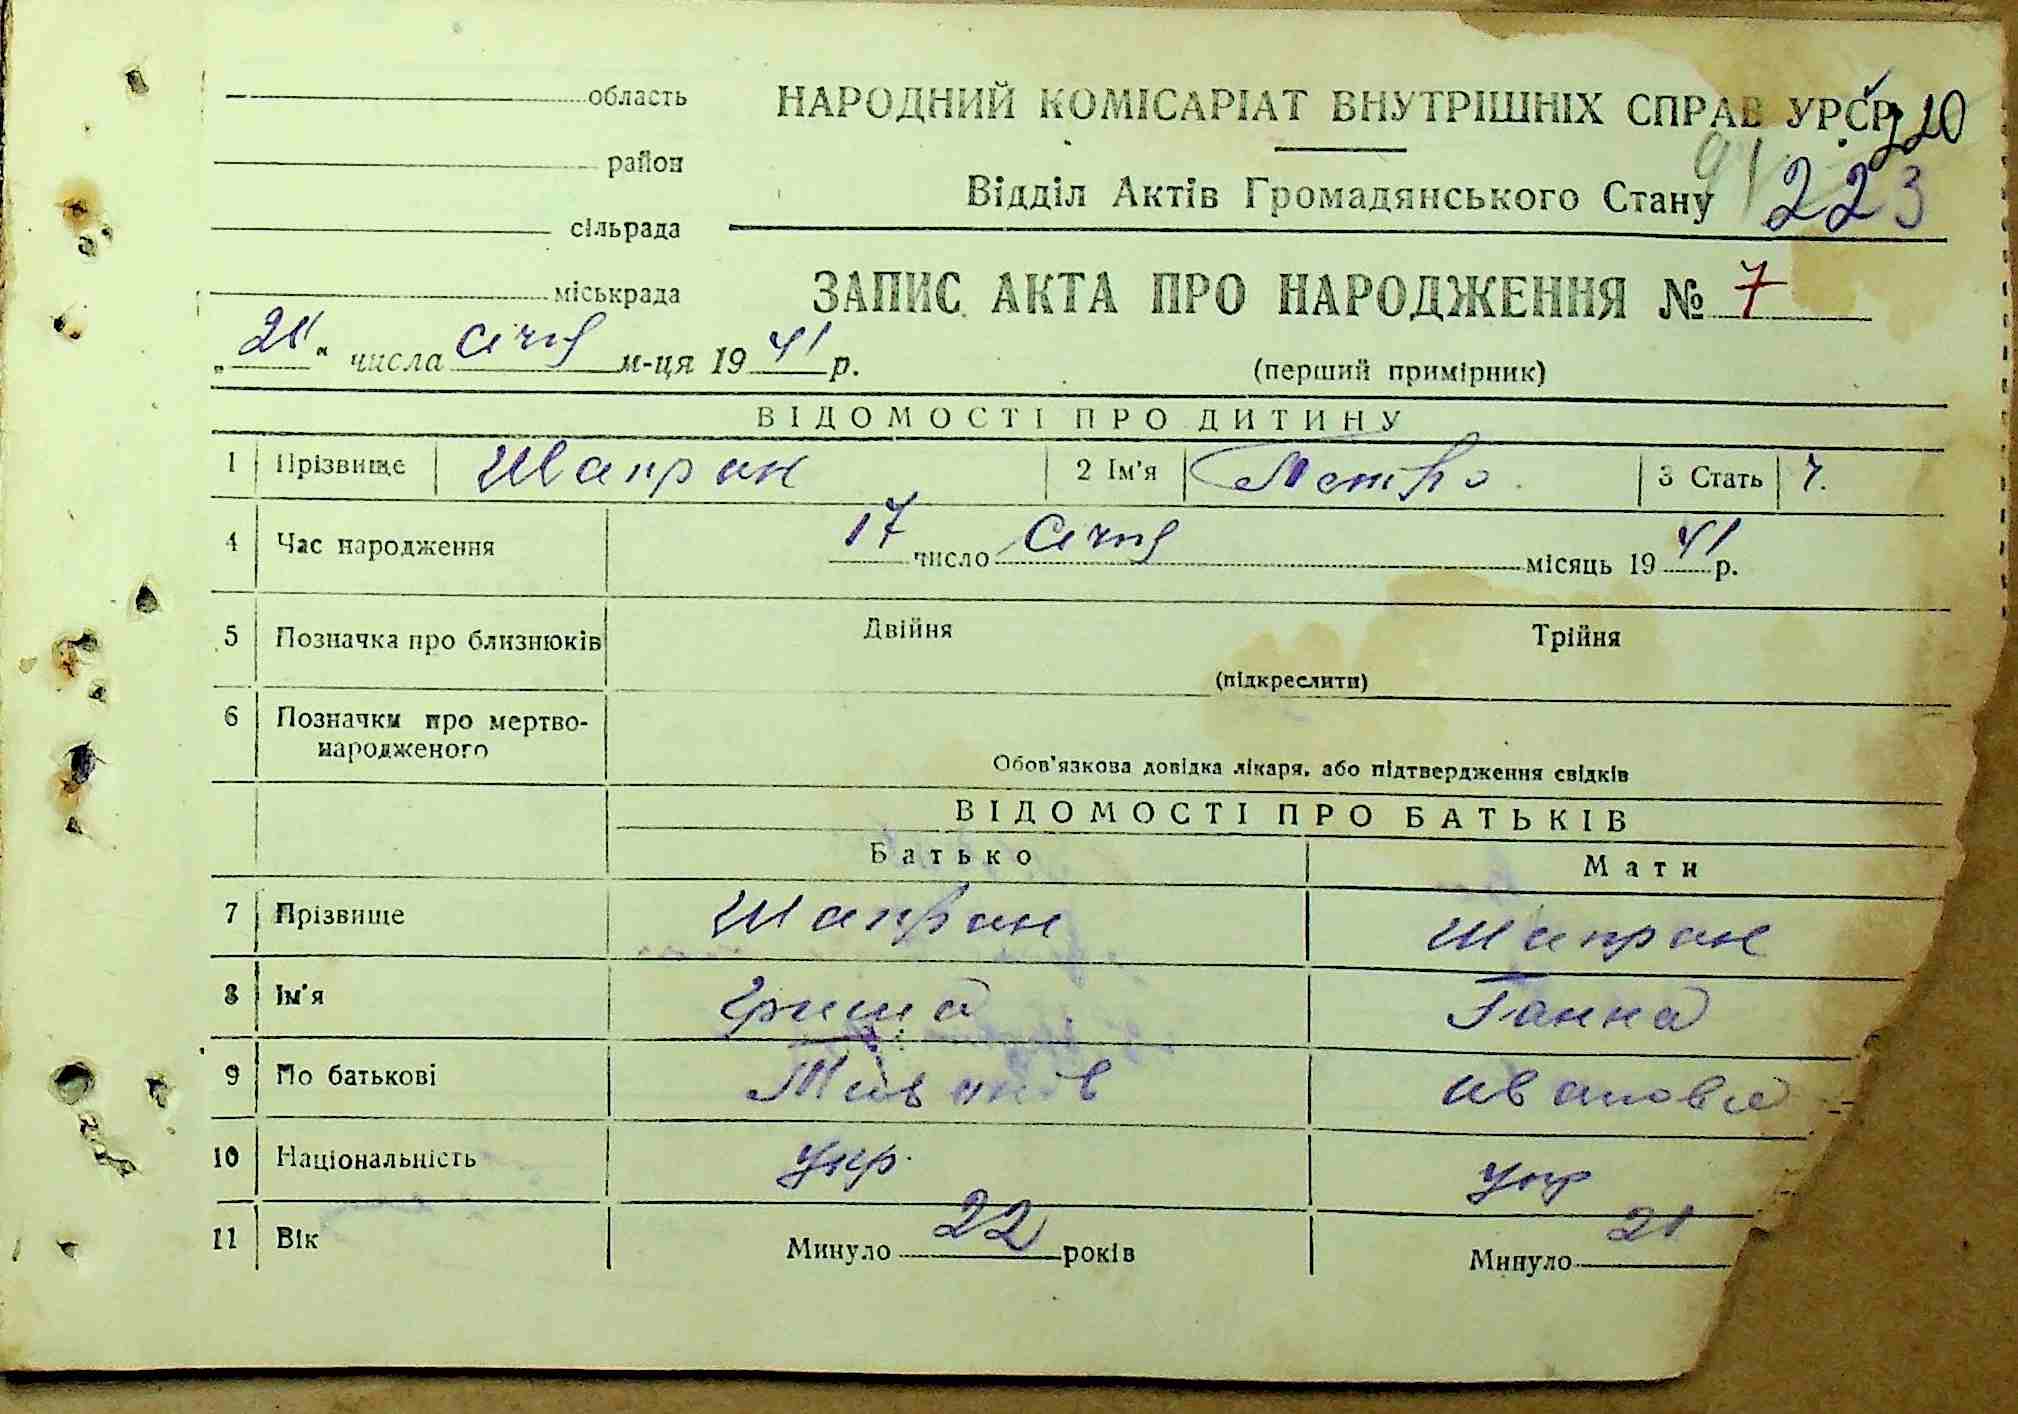 область
НАРОДНИЙ КОМІСАРІАТ ВНУТРІШНІХ СПРАВ УРСР
220
район
91
Відділ Актів Громадянського Стану
223
сільрада
міськрада
ЗАПИС АКТА ПРО НАРОДЖЕННЯ № 7
„21“ числа січня м-ця 1941 р.
(перший примірник)
ВІДОМОСТІ ПРО ДИТИНУ
1 Прізвище Шапран 2 Ім'я Петро 3 Стать ч.
4 Час народження 17 число Січня місяць 1941 р.
5 Позначка про близнюків Двійня Трійня
(підкреслити)
6 Позначки про мертво-
народженого
Обов'язкова довідка лікаря, або підтвердження свідків
ВІДОМОСТІ ПРО БАТЬКІВ
Батько Мати
7 Прізвище Шапран Шапран
8 Ім'я Гриша Ганна
9 По батькові Ивановна
10 Національність укр. укр
11 Вік Минуло 22 років Минуло 21